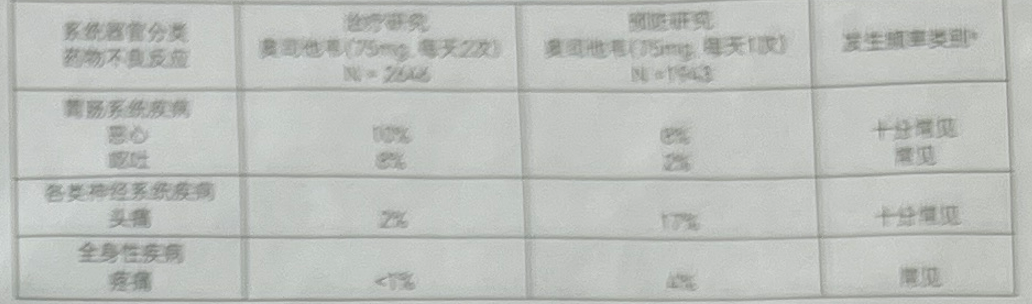 系统器官分类
药物不良反应
治疗研究
奥司他韦(75mg, 每天2次)
N = 2646
预防研究
奥司他韦(75mg, 每天1次)
N = 1943
发生频率类别
胃肠系统疾病
恶心 10% 8% 十分常见
呕吐 8% 2% 常见
各类神经系统疾病
头痛 2% 17% 十分常见
全身性疾病
疼痛 <1% 4% 常见